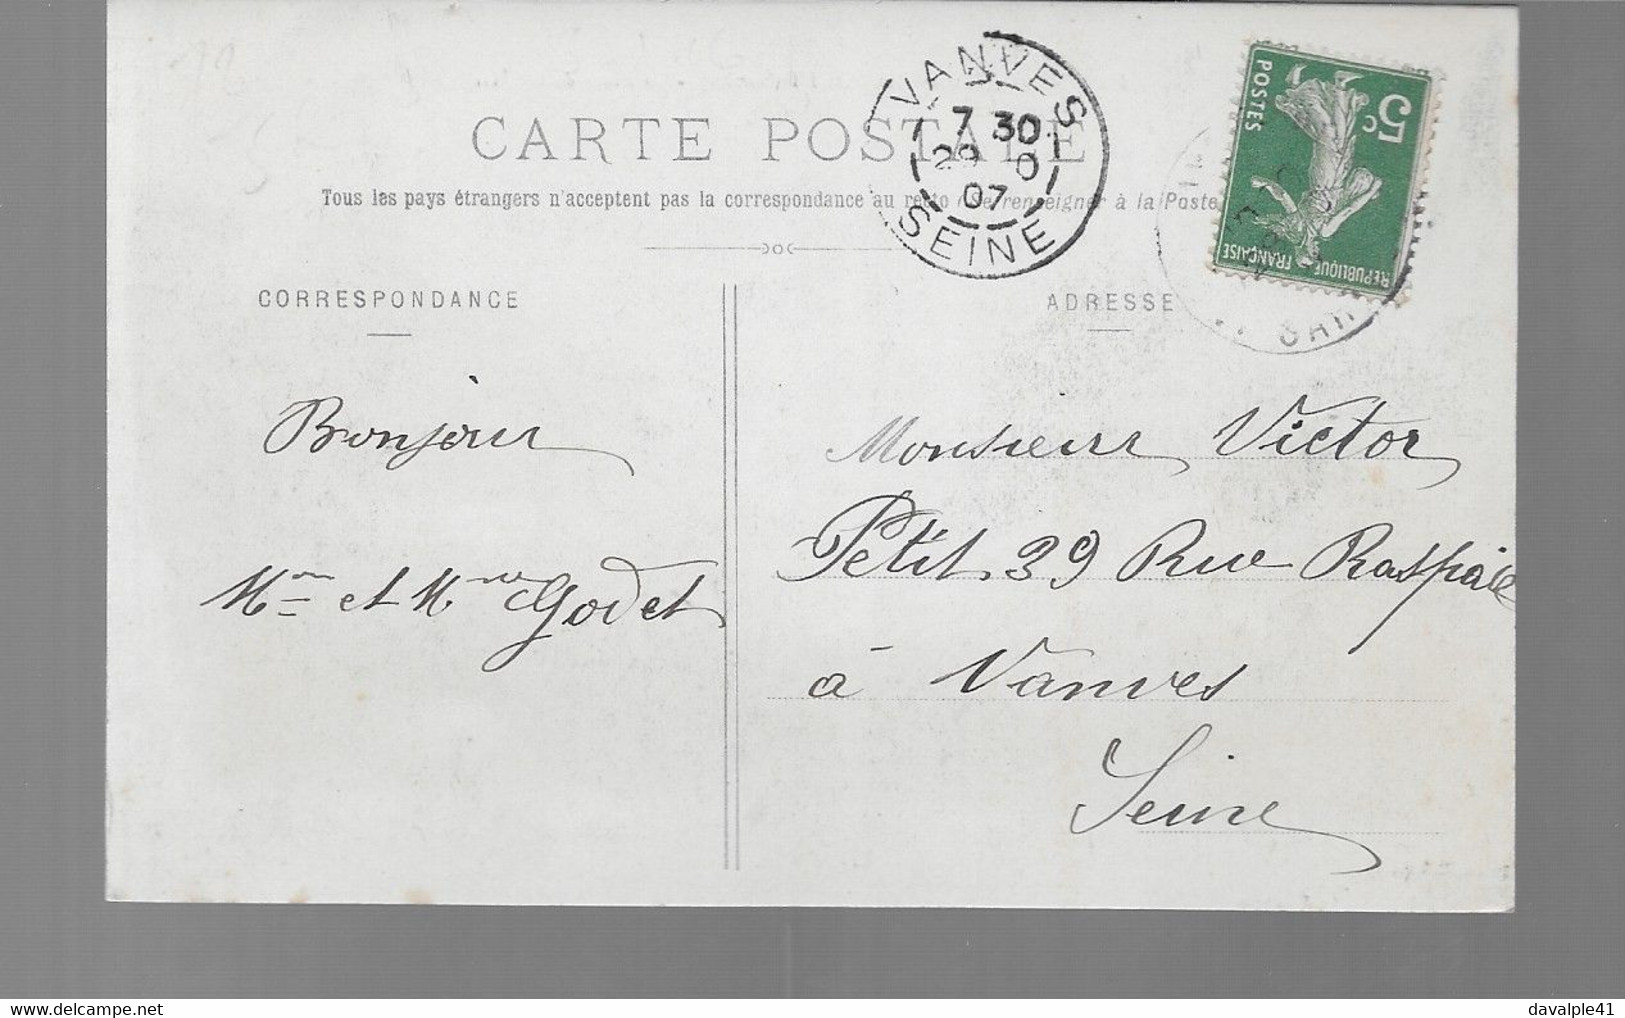 CARTE POSTALE
Tous les pays étrangers n'acceptent pas la correspondance au recto (Se renseigner à la Poste
VANVES
7 30
29 O
07
SEINE
5c
POSTES
REPUBLIQUE FRANÇAISE
CORRESPONDANCE
Bonjour
Mr et Mme Godet
ADRESSE
Monsieur Victor
Petit 39 Rue Raspail
à Vanves
Seine
davalple41